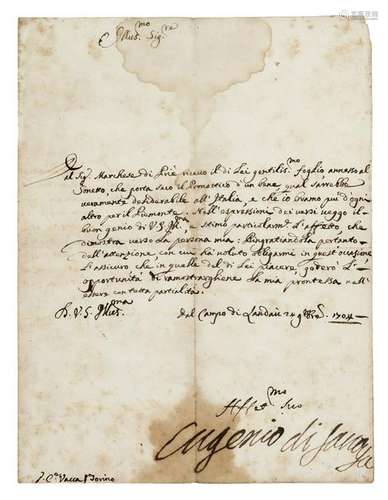 Illus.mo Sig.re
Dal Sig.r Marchese di Priè ricevo il di Lei gentilis.mo foglio annesso al
Sonetto, che porta seco il pronostico d'un bene qual sarebbe
veramente desiderabile all'Italia, e che io bramo più d'ogn'
altro per il Piemonte. Nell'espressioni dei versi veggo il
buon genio di V.S. Ill., e stimo particolarm.te l'affetto, che
dimostra verso la persona mia. Ringratiandola pertanto
dell'attenzione con cui hà voluto obligarmi in quest'occasione
L'assicuro che in quelle di di Lei piacere, goderò l'
opportunità di rimostrarglione la mia prontezza nell'
essere con tutta partialità.
D. V. S. Illus.ma
Dal Campo di Landau 24 9bre 1704
Affet.mo Suo
Eugenio di Savoya
S. Co. Vacca Torino